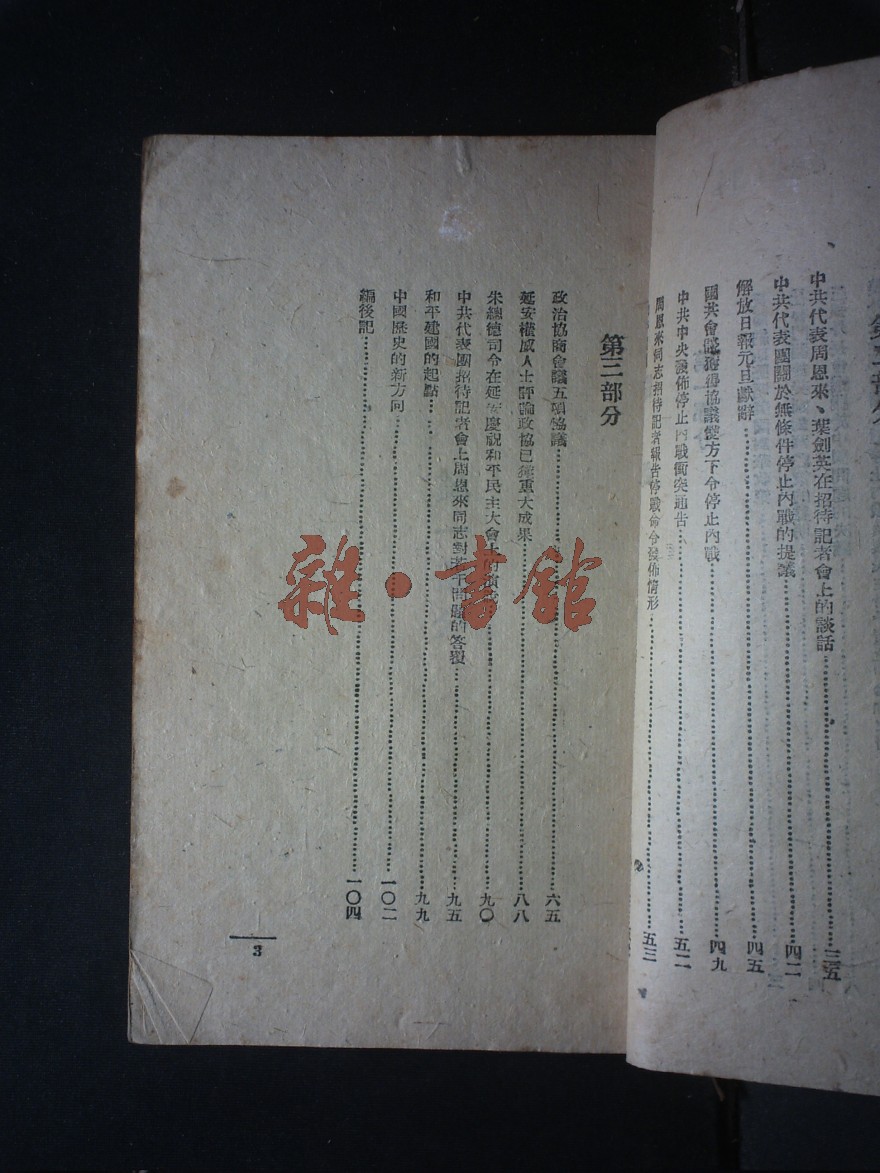 第二部分
中共代表周恩來、葉劍英在招待記者會上的談話……三五
中共代表團關於無條件停止內戰的提議……四二
解放日報元旦獻辭……四五
國共會談獲得協議雙方下令停止內戰……四九
中共中央發佈停止內戰衝突通告……五二
周恩來同志招待記者報告停戰命令發佈情形……五三
第三部分
政治協商會議五項協議……六五
延安權威人士評論政協已獲重大成果……八八
朱總德司令在延安慶祝和平民主大會上的……九〇
中共代表團招待記者會上周恩來同志對若干問題的答覆……九五
和平建國的起點……九九
中國歷史的新方向……一〇二
編後記……一〇四
3
雜·書館